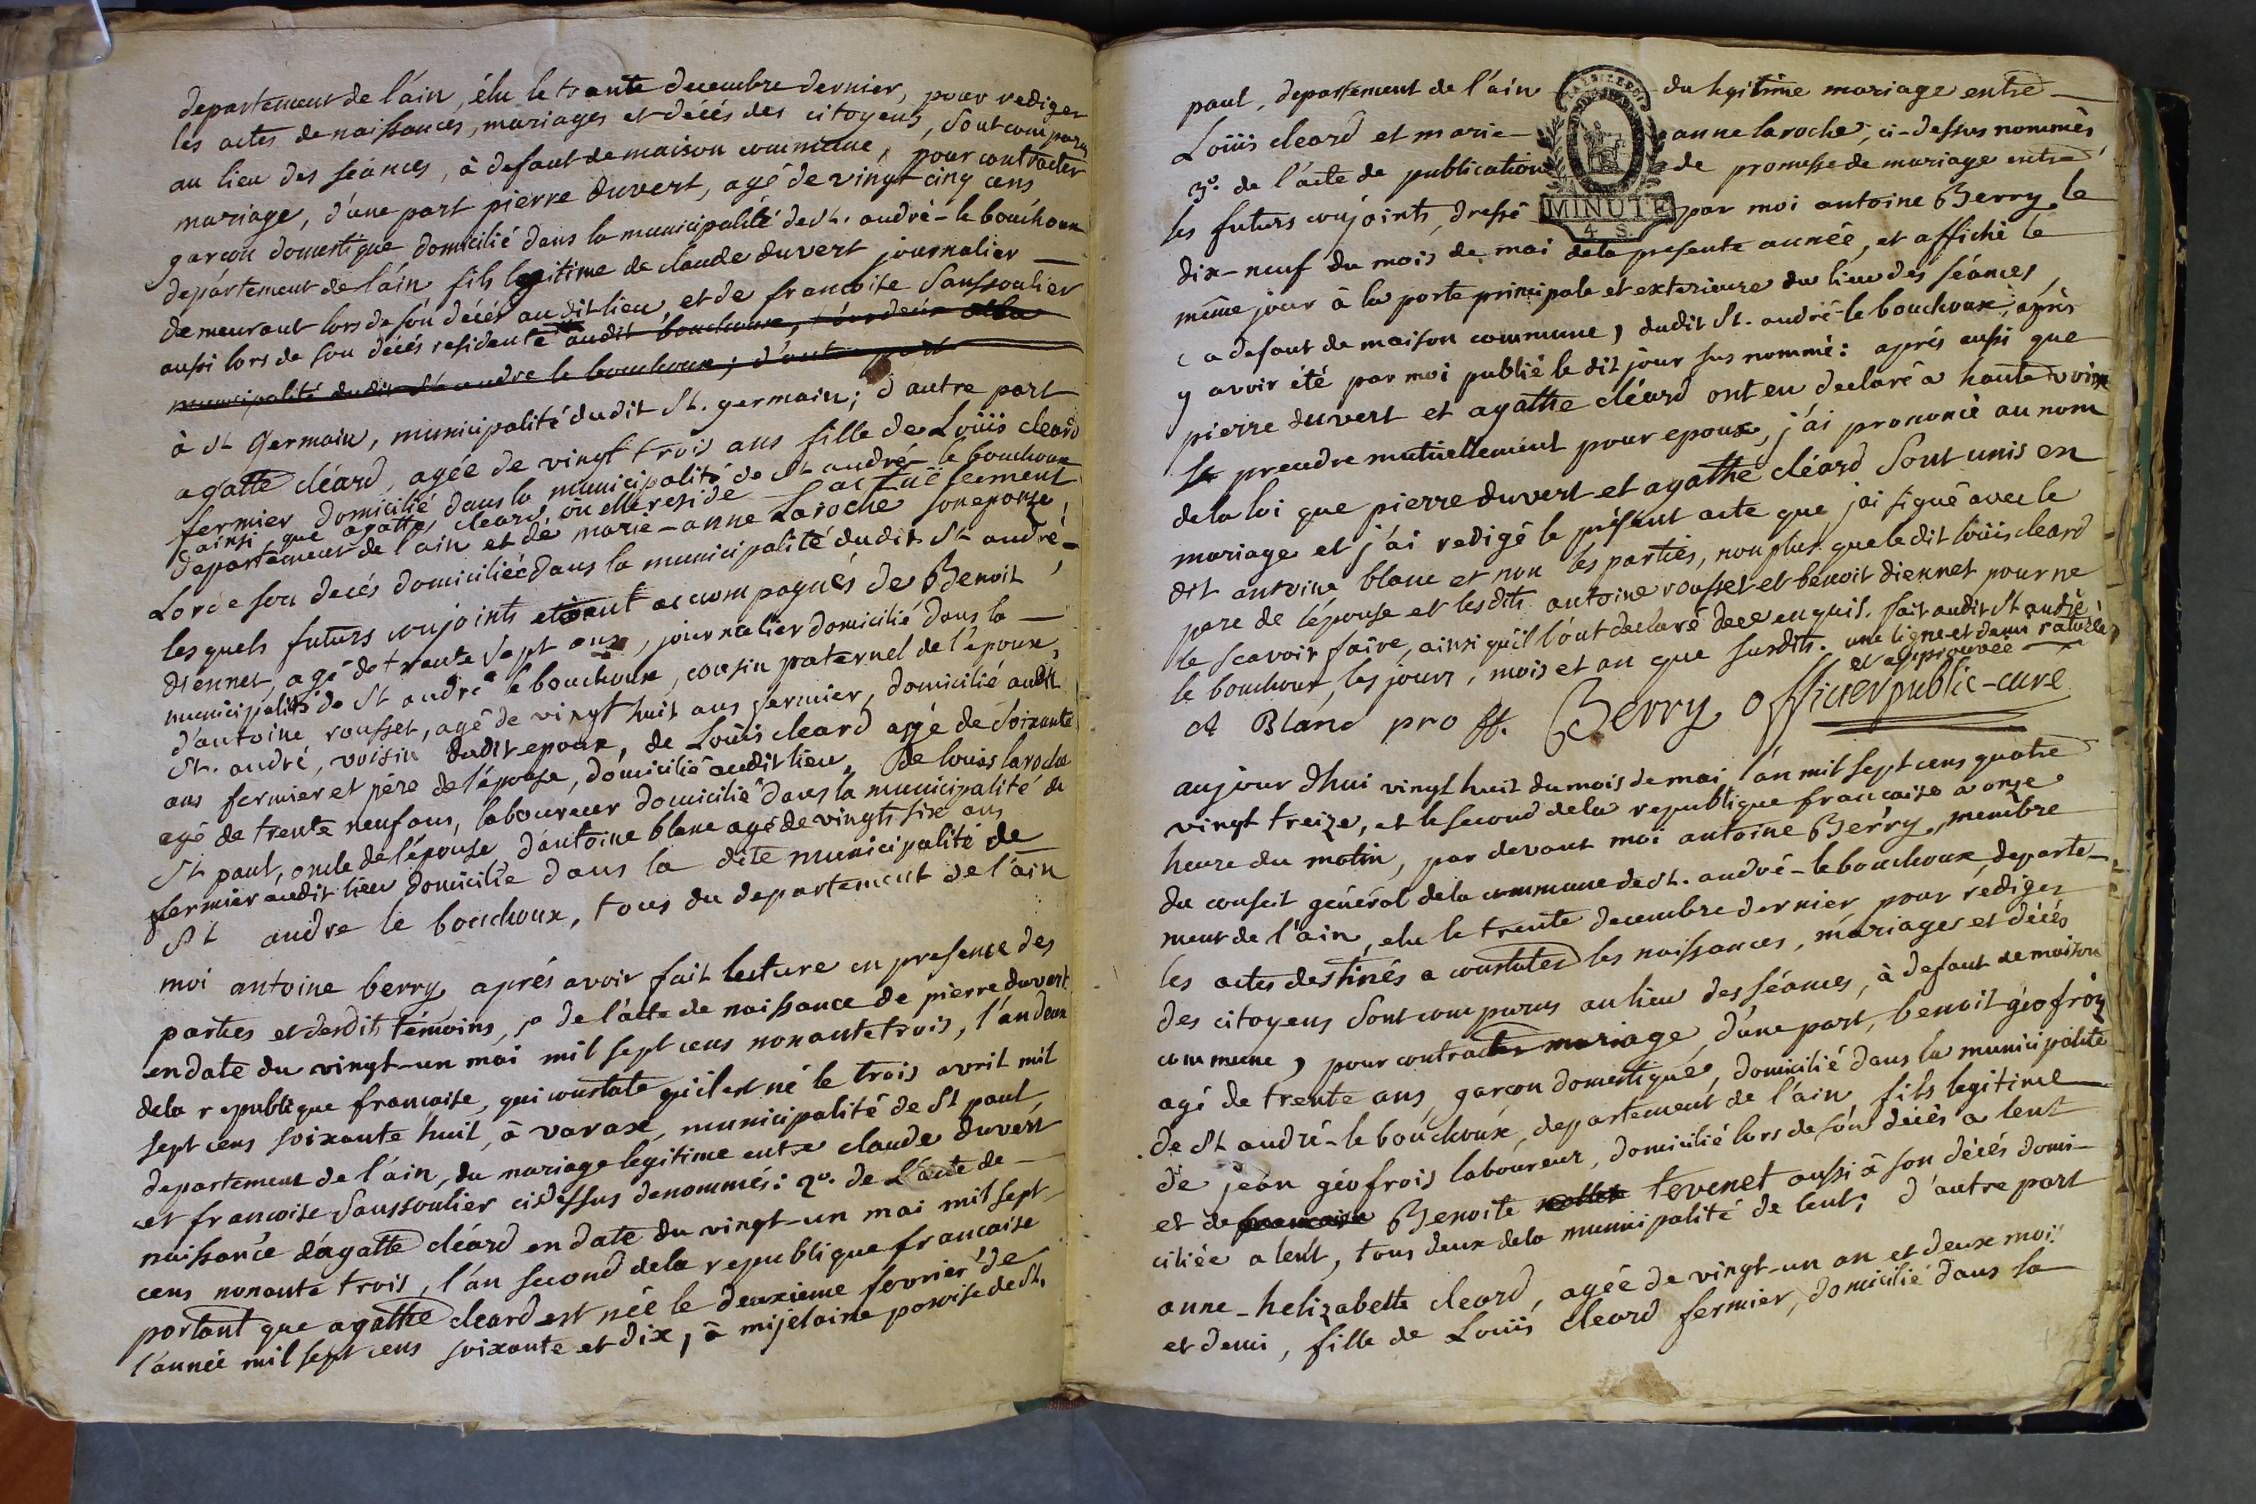 departement de l'ain, élu le trante decembre dernier, pour rediger
les actes de naissances, mariages et décés des citoyens, sont comparus
au lieu des séances, à defaut de maison commune, pour contracter
mariage, d'une part pierre duvert, agé de vingt-cinq ans
garçon domestique domicilié dans la municipalité de st. andré-le bouchoux
département de l'ain fils legitime de claude duvert journalier
demeurant lors de son décés audit lieu, et de francoise saussoulier
aussi lors de son décés residente audit bouchoux, tous deux de la
municipalité dudit st andre le bouchoux; d'autre part
à st Germain, municipalité dudit st. germain; d'autre part
agatte cléard, agée de vingt trois ans fille de Loüis cleard
fermier domicilié dans la municipalité de st andré-le bouchoux
ainsi que agatte cleard, où elle reside actuellement
departement de l'ain et de marie-anne Laroche son epouse,
Lors de son decés domiciliée dans la municipalité dudit st andré-
les quels futurs conjoints etoient accompagnés de Benoit
diennet, agé de trente sept ans, journalier domicilié dans la
municipalité de st andré le bouchoux, cousin paternel de l'époux,
d'antoine rousset, agé de vingt huit ans fermier, domicilié audit
st. andré, voisin dudit epoux, de Loüis cleard agé de soixante
ans fermier et père de l'épouse, domicilié audit lieu, de louis laroche
agé de trente neuf ans, laboureur domicilié dans la municipalité de
st paul, oncle de l'épouse d'antoine blanc agé de vingts six ans
fermier audit lieu domicilié dans la dite municipalité de
st andre le bouchoux, tous du departement de l'ain
moi antoine berry, aprés avoir fait lecture en presence des
parties et desdits témoins, 1º de l'acte de naissance de pierre duvert
en date du vingt-un mai mil sept cens nonante trois, l'an deux
de la republique francaise, qui constate qu'il est né le trois avril mil
sept cens soixante huit, à varax, municipalité de st paul
departement de l'ain, du mariage legitime entre claude duvert
et francoise saussoulier cidessus denommés: 2º. de l'acte de
naissance d'agatte cléard en date du vingt-un mai mil sept
cens nonante trois, l'an second de la republique francaise
portant que agathe cleard est née le deuxieme fevrier de
l'année mil sept cens soixante et dix, à mijelaine paroisse de st.
paul, departement de l'ain du legitime mariage entre
Loüis cleard et marie- anne laroche, ci-dessus nommés
3º. de l'acte de publication de promesse de mariage entre
les futurs conjoints, dressé par moi antoine Berry, le
MINUTE
4 S.
dix-neuf du mois de mai de la presente année, et affiché le
même jour à la porte principale et exterieure du lieu des séances
(a defaut de maison commune) dudit st. andré-le bouchoux, aprés
y avoir été par moi publié le dit jour sus nommé: aprés aussi que
pierre duvert et agathe cléard ont eu declaré a haute voix
se prendre mutuellement pour epoux, j'ai prononcé au nom
de la loi que pierre duvert et agathe cléard sont unis en
mariage et j'ai redigé le présent acte que j'ai signé avec le
dit antoine blanc et non les parties, non plus que le dit loüis cleard
pere de l'épouse et lesdits antoine rousset et benoit diennet pour ne
le scavoir faire, ainsi qu'il l'ont declaré de ce enquis. fait audit st andré
le bouchoux, les jours, mois et an que susdits. une ligne et demi raturée
et approuvée
A Bland pro ff. Berry officier public-curé
aujourdhui vingt huit du mois de mai l'an mil sept cens quatre
vingt treize, et le second de la republique francaise a onze
heure du matin, par devant moi antoine Berry, membre
du conseil général de la commune de st. andré-le bouchoux, departe-
ment de l'ain, elu le trente decembre dernier, pour rédiger
les actes destinés a constater les naissances, mariages et décés
des citoyens sont comparus au lieu des séances, à defaut de maison
commune, pour contracter mariage, d'une part, benoit géofroy
agé de trente ans, garcon domestique, domicilié dans la municipalité
de st andré-le bouchoux, departement de l'ain, fils legitime
de jean géofrois laboureur, domicilié lors de son décès a lent
et de francoise Benoite tevenet aussi à son décés domi-
ciliée a lent, tous deux de la municipalité de lent; d'autre part
anne-helizabette cleard, agée de vingt-un an et deux mois
et demi, fille de Loüis cleard fermier, domicilié dans la